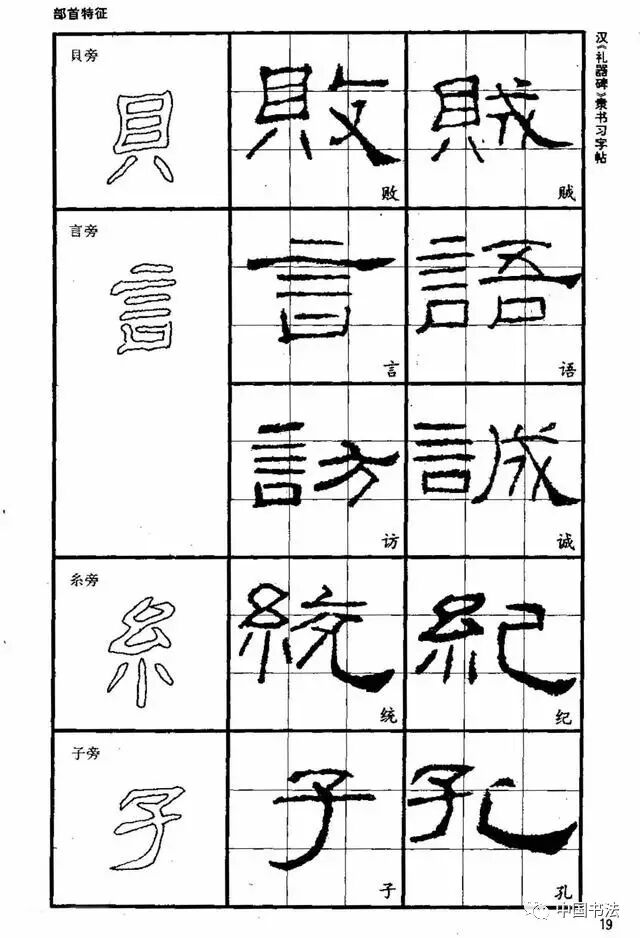 部首特征
汉《礼器碑》隶书习字帖
貝旁
貝
敗
败
賊
贼
言旁
言
言
言
語
语
訪
访
誠
诚
糸旁
糸
統
统
紀
纪
子旁
子
子
子
孔
孔
中国书法
19